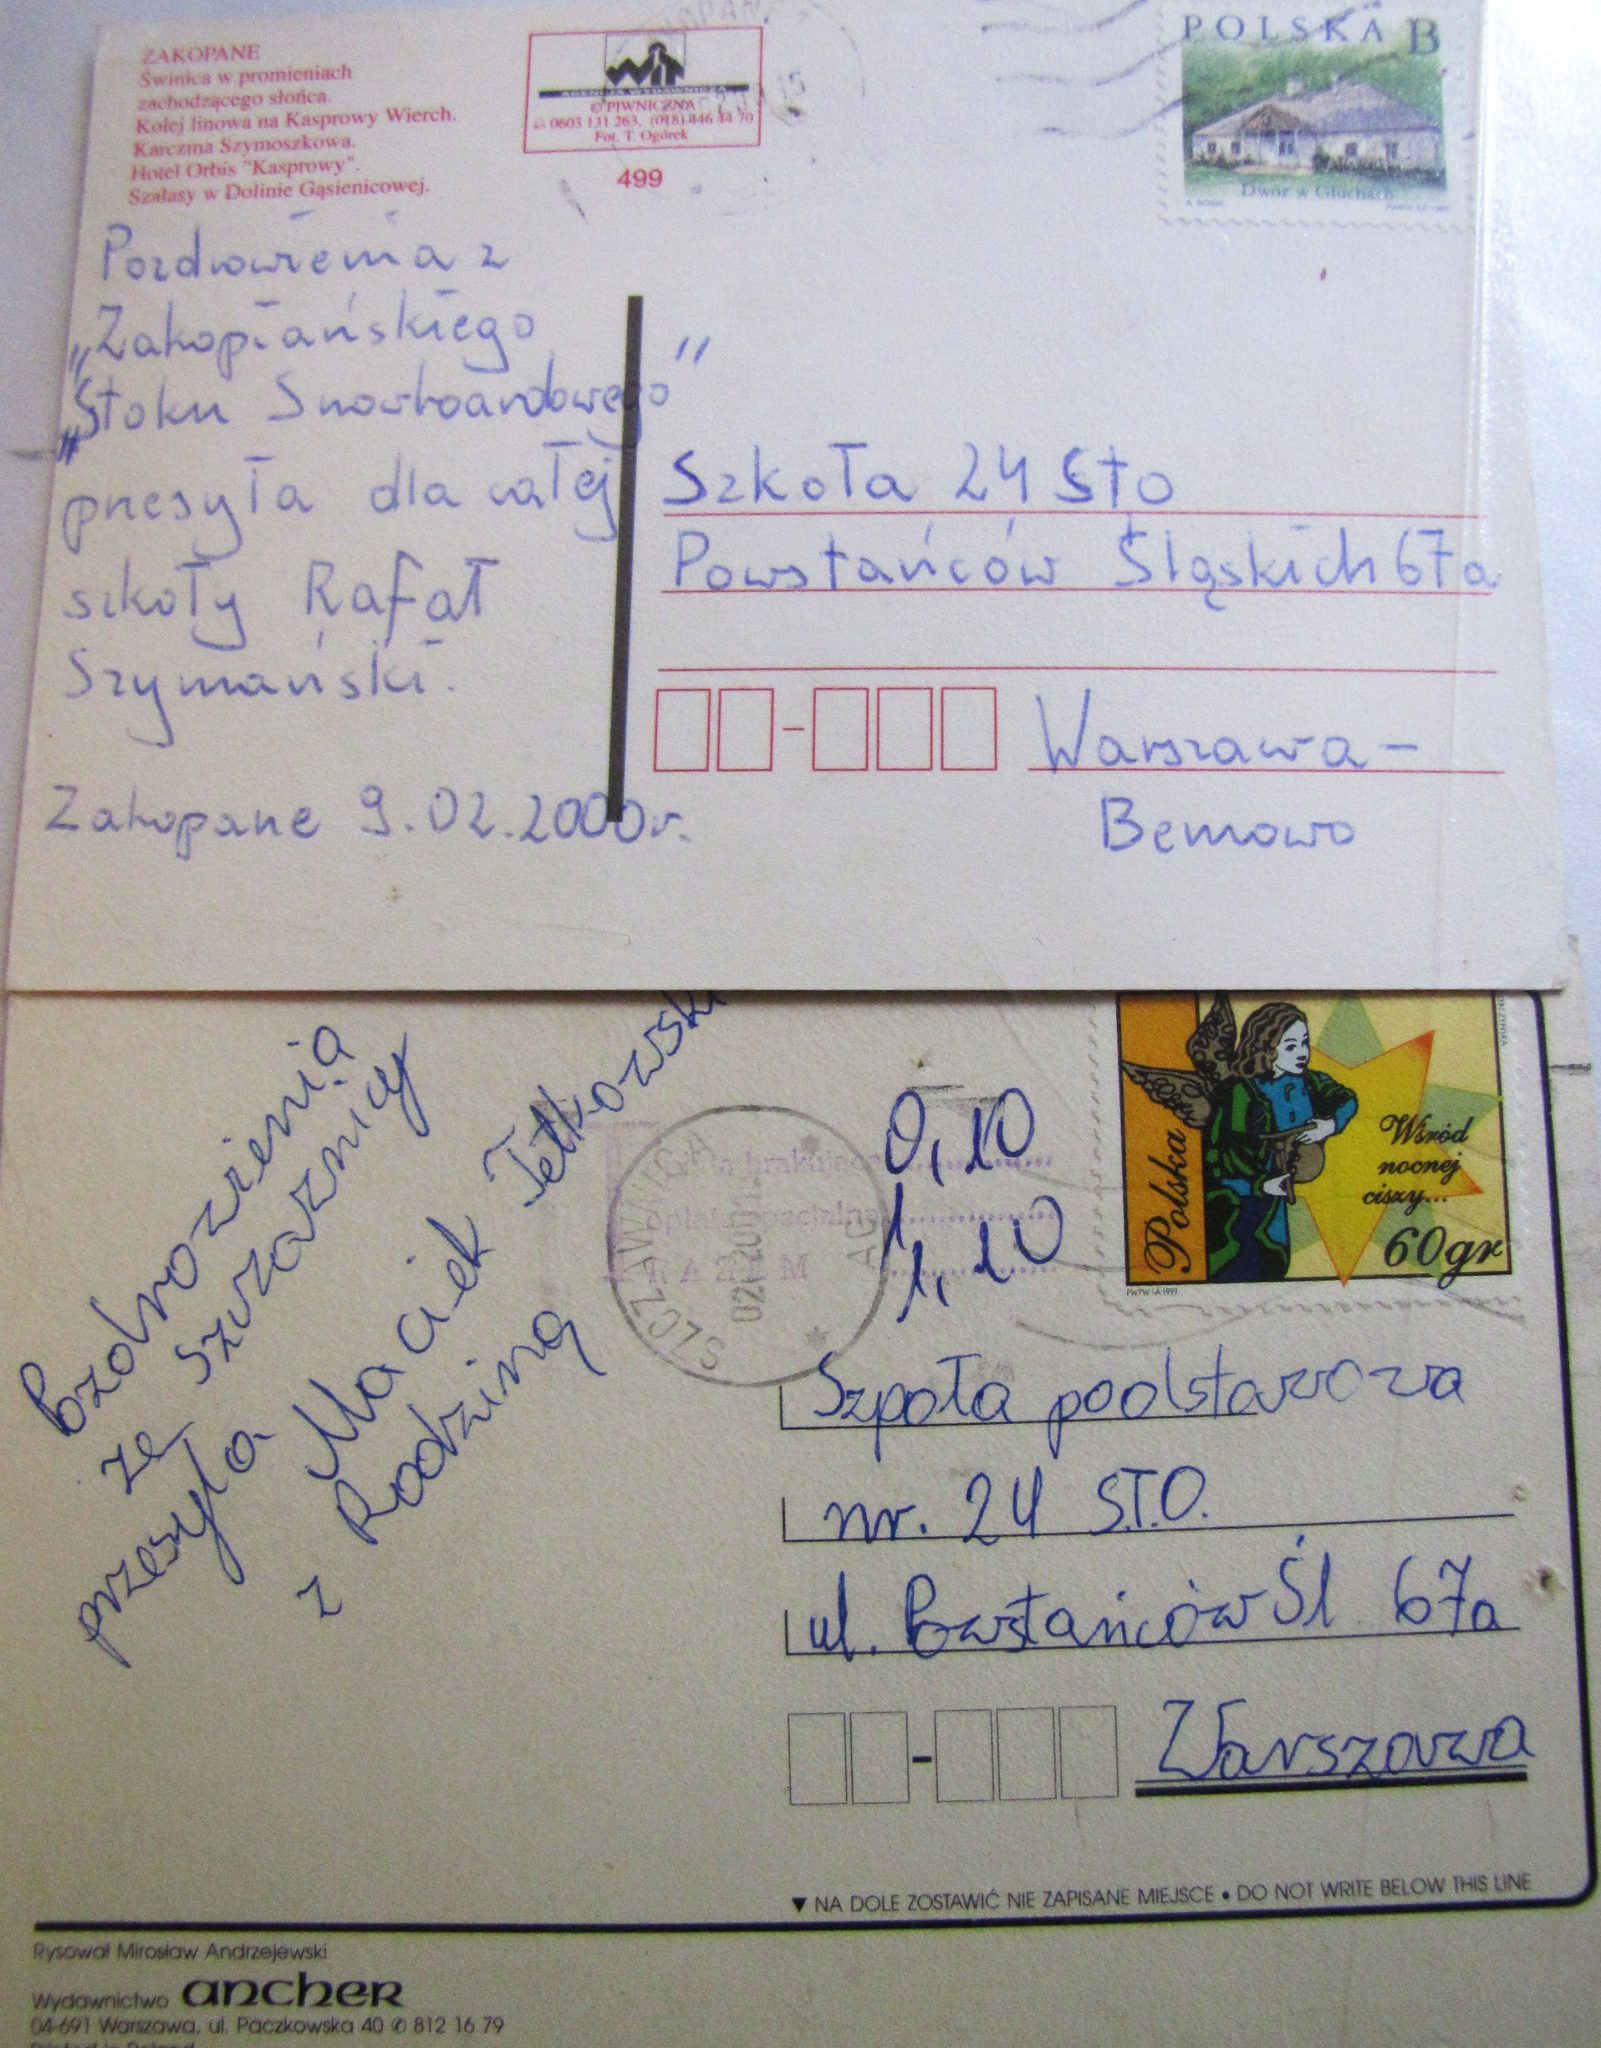 ZAKOPANE
Świnica w promieniach
zachodzącego słońca.
Kolej linowa na Kasprowy Wierch.
Karczma Szymoszkowa.
Hotel Orbis "Kasprowy".
Szałasy w Dolinie Gąsienicowej.
WiT
AGENCJA WYDAWNICZA
© PIWNICZNA
0603 131 263, (018) 446 44 70
Fot. T. Ogórek
499
POLSKA B
Dwór w Głuchach
Pozdrowienia z
„Zakopiańskiego
„Stoku Snowboardowego”
przesyła dla całej
szkoły Rafał
Szymański.
Zakopane 9.02.2000r.
Szkoła 24 Sto
Powstańców Śląskich 67a
Warszawa-
Bemowo
Pozdrowienia
ze Szczawnicy
przesyła Maciek
z Rodziną
SZCZAWNICA
0,10
1,10
Polska
Wśród
nocnej
ciszy...
60gr
PWPW SA 1999
Szpoła podstawowa
nr. 24 S.T.O.
ul. Powstańców Śl 67a
Warszawa
▼ NA DOLE ZOSTAWIĆ NIE ZAPISANE MIEJSCE • DO NOT WRITE BELOW THIS LINE
Rysował Mirosław Andrzejewski
Wydawnictwo ancher
04-691 Warszawa, ul. Paczkowska 40 ✆ 812 16 79
Printed in Poland